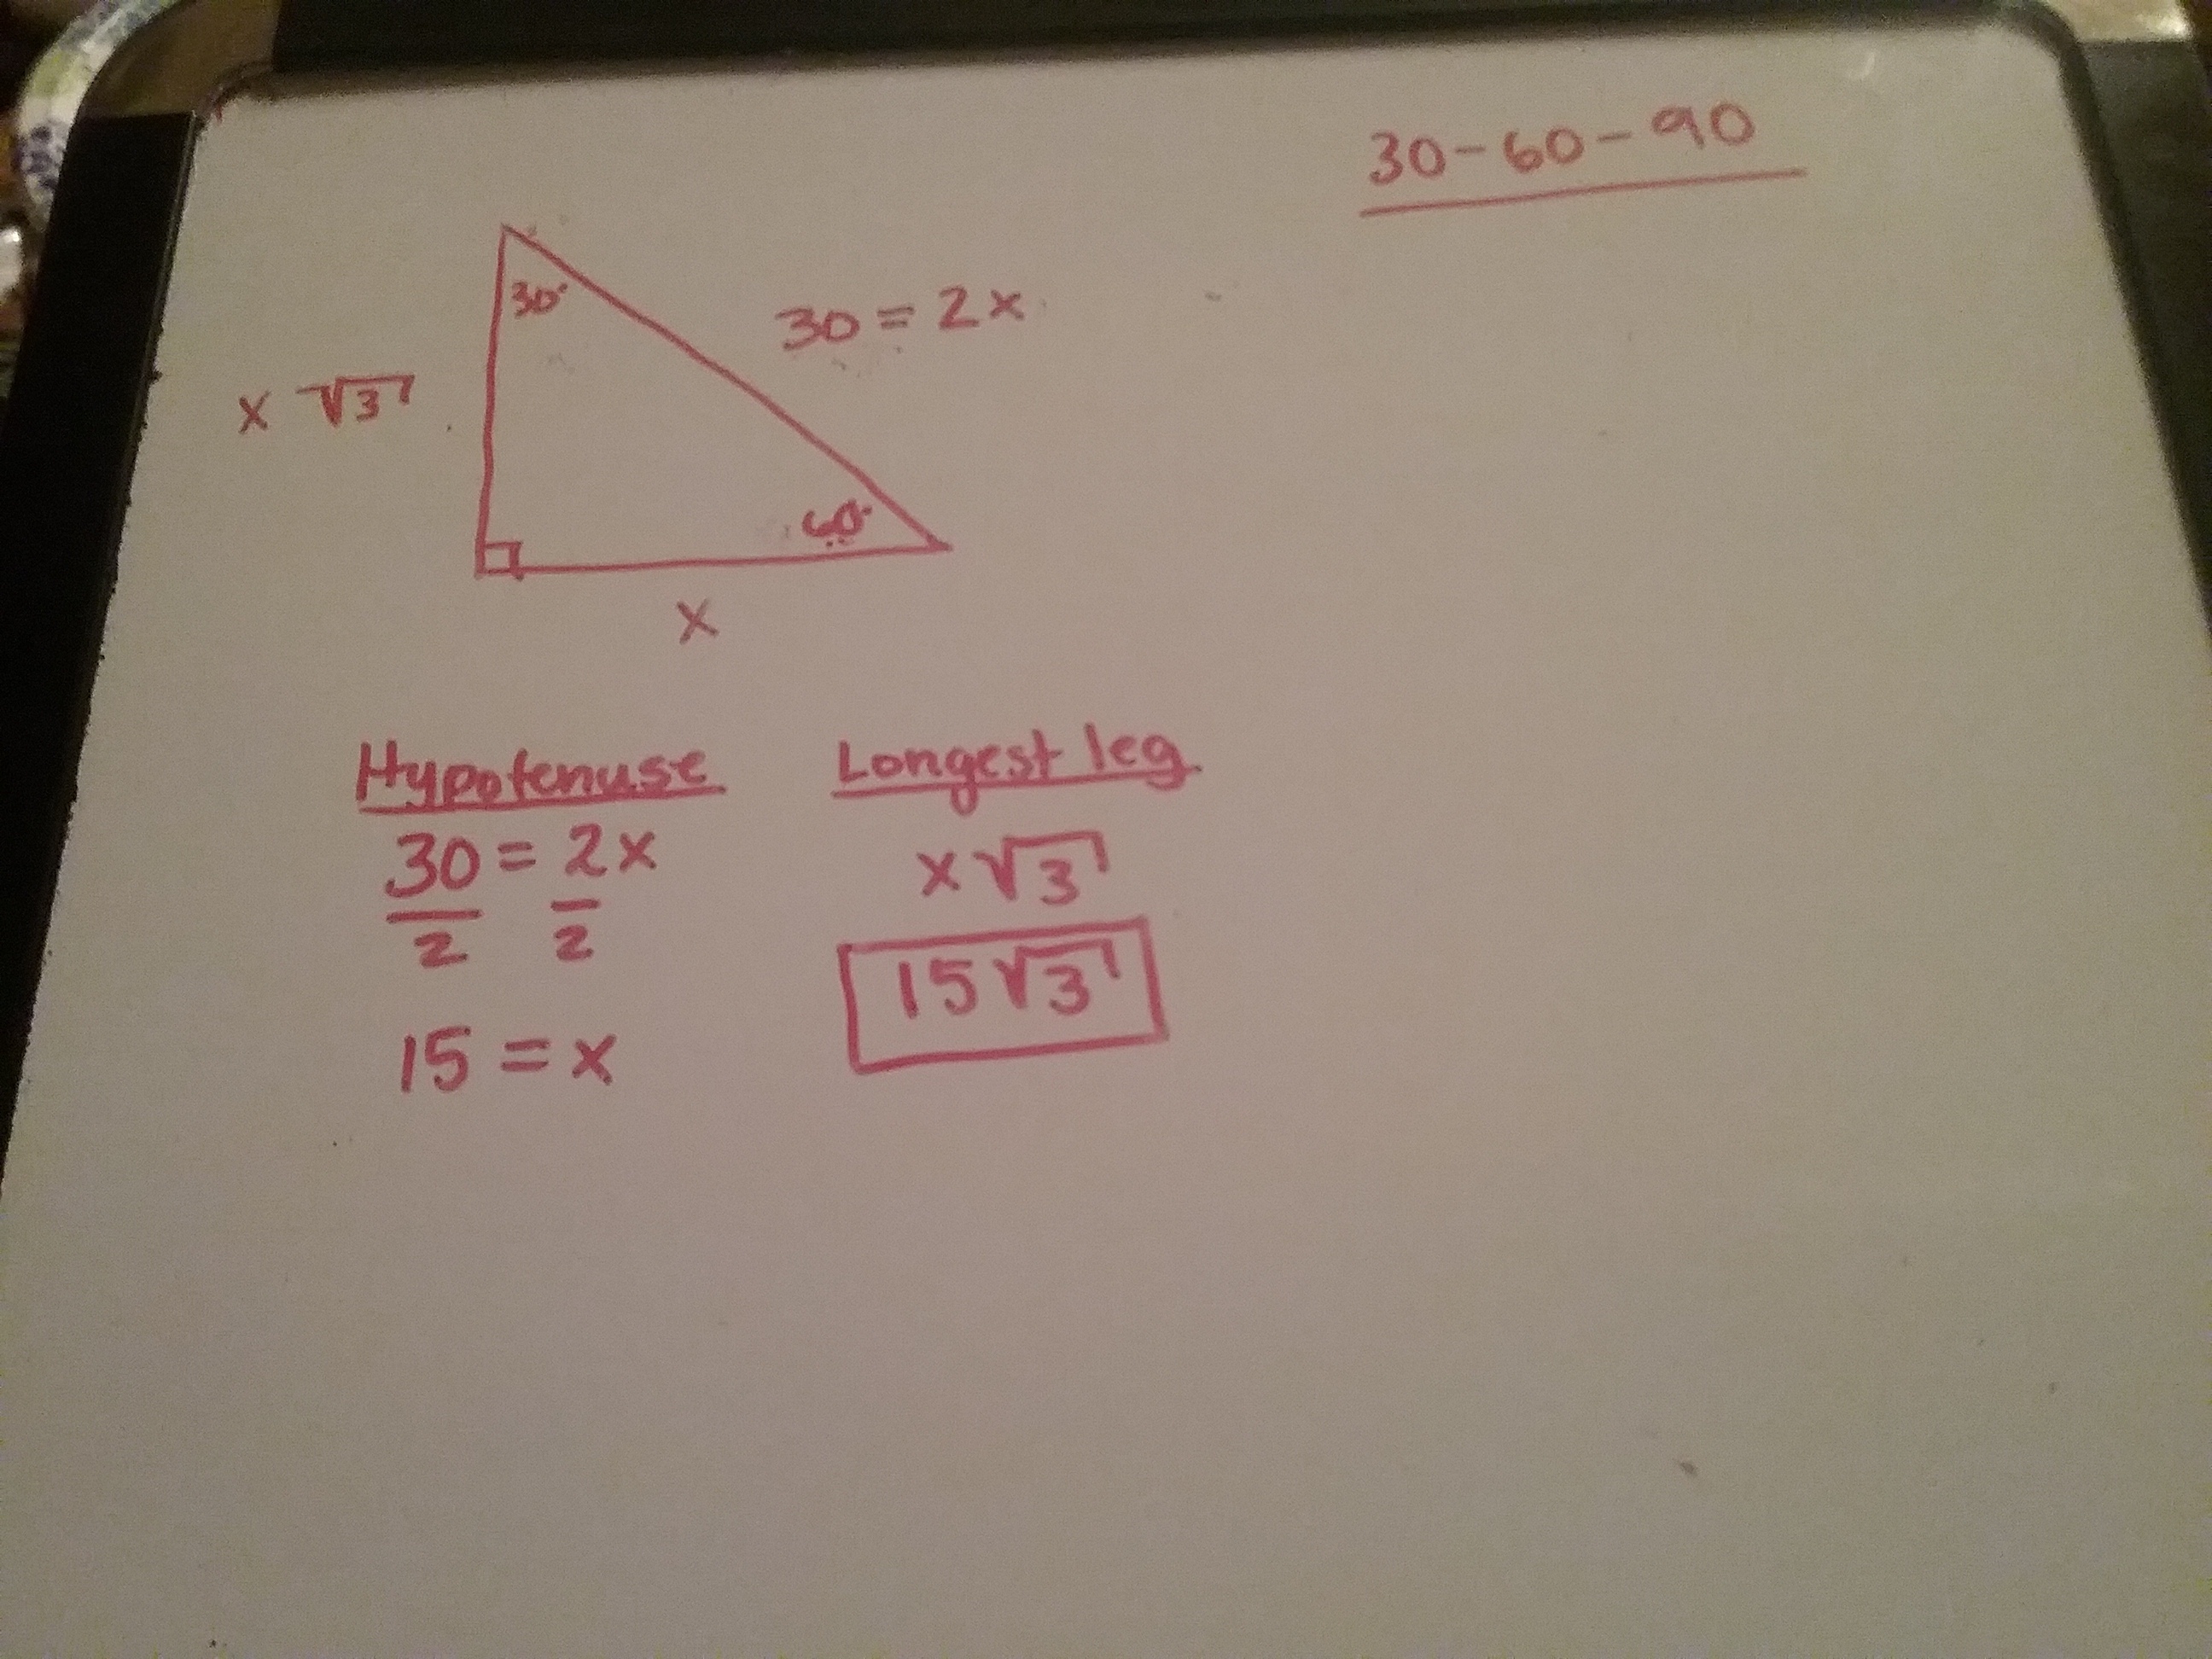 30-60-90
30°
30 = 2x
x √3
60°
x
Hypotenuse
30 = 2x
2 2
15 = x
Longest leg
x√3
15√3